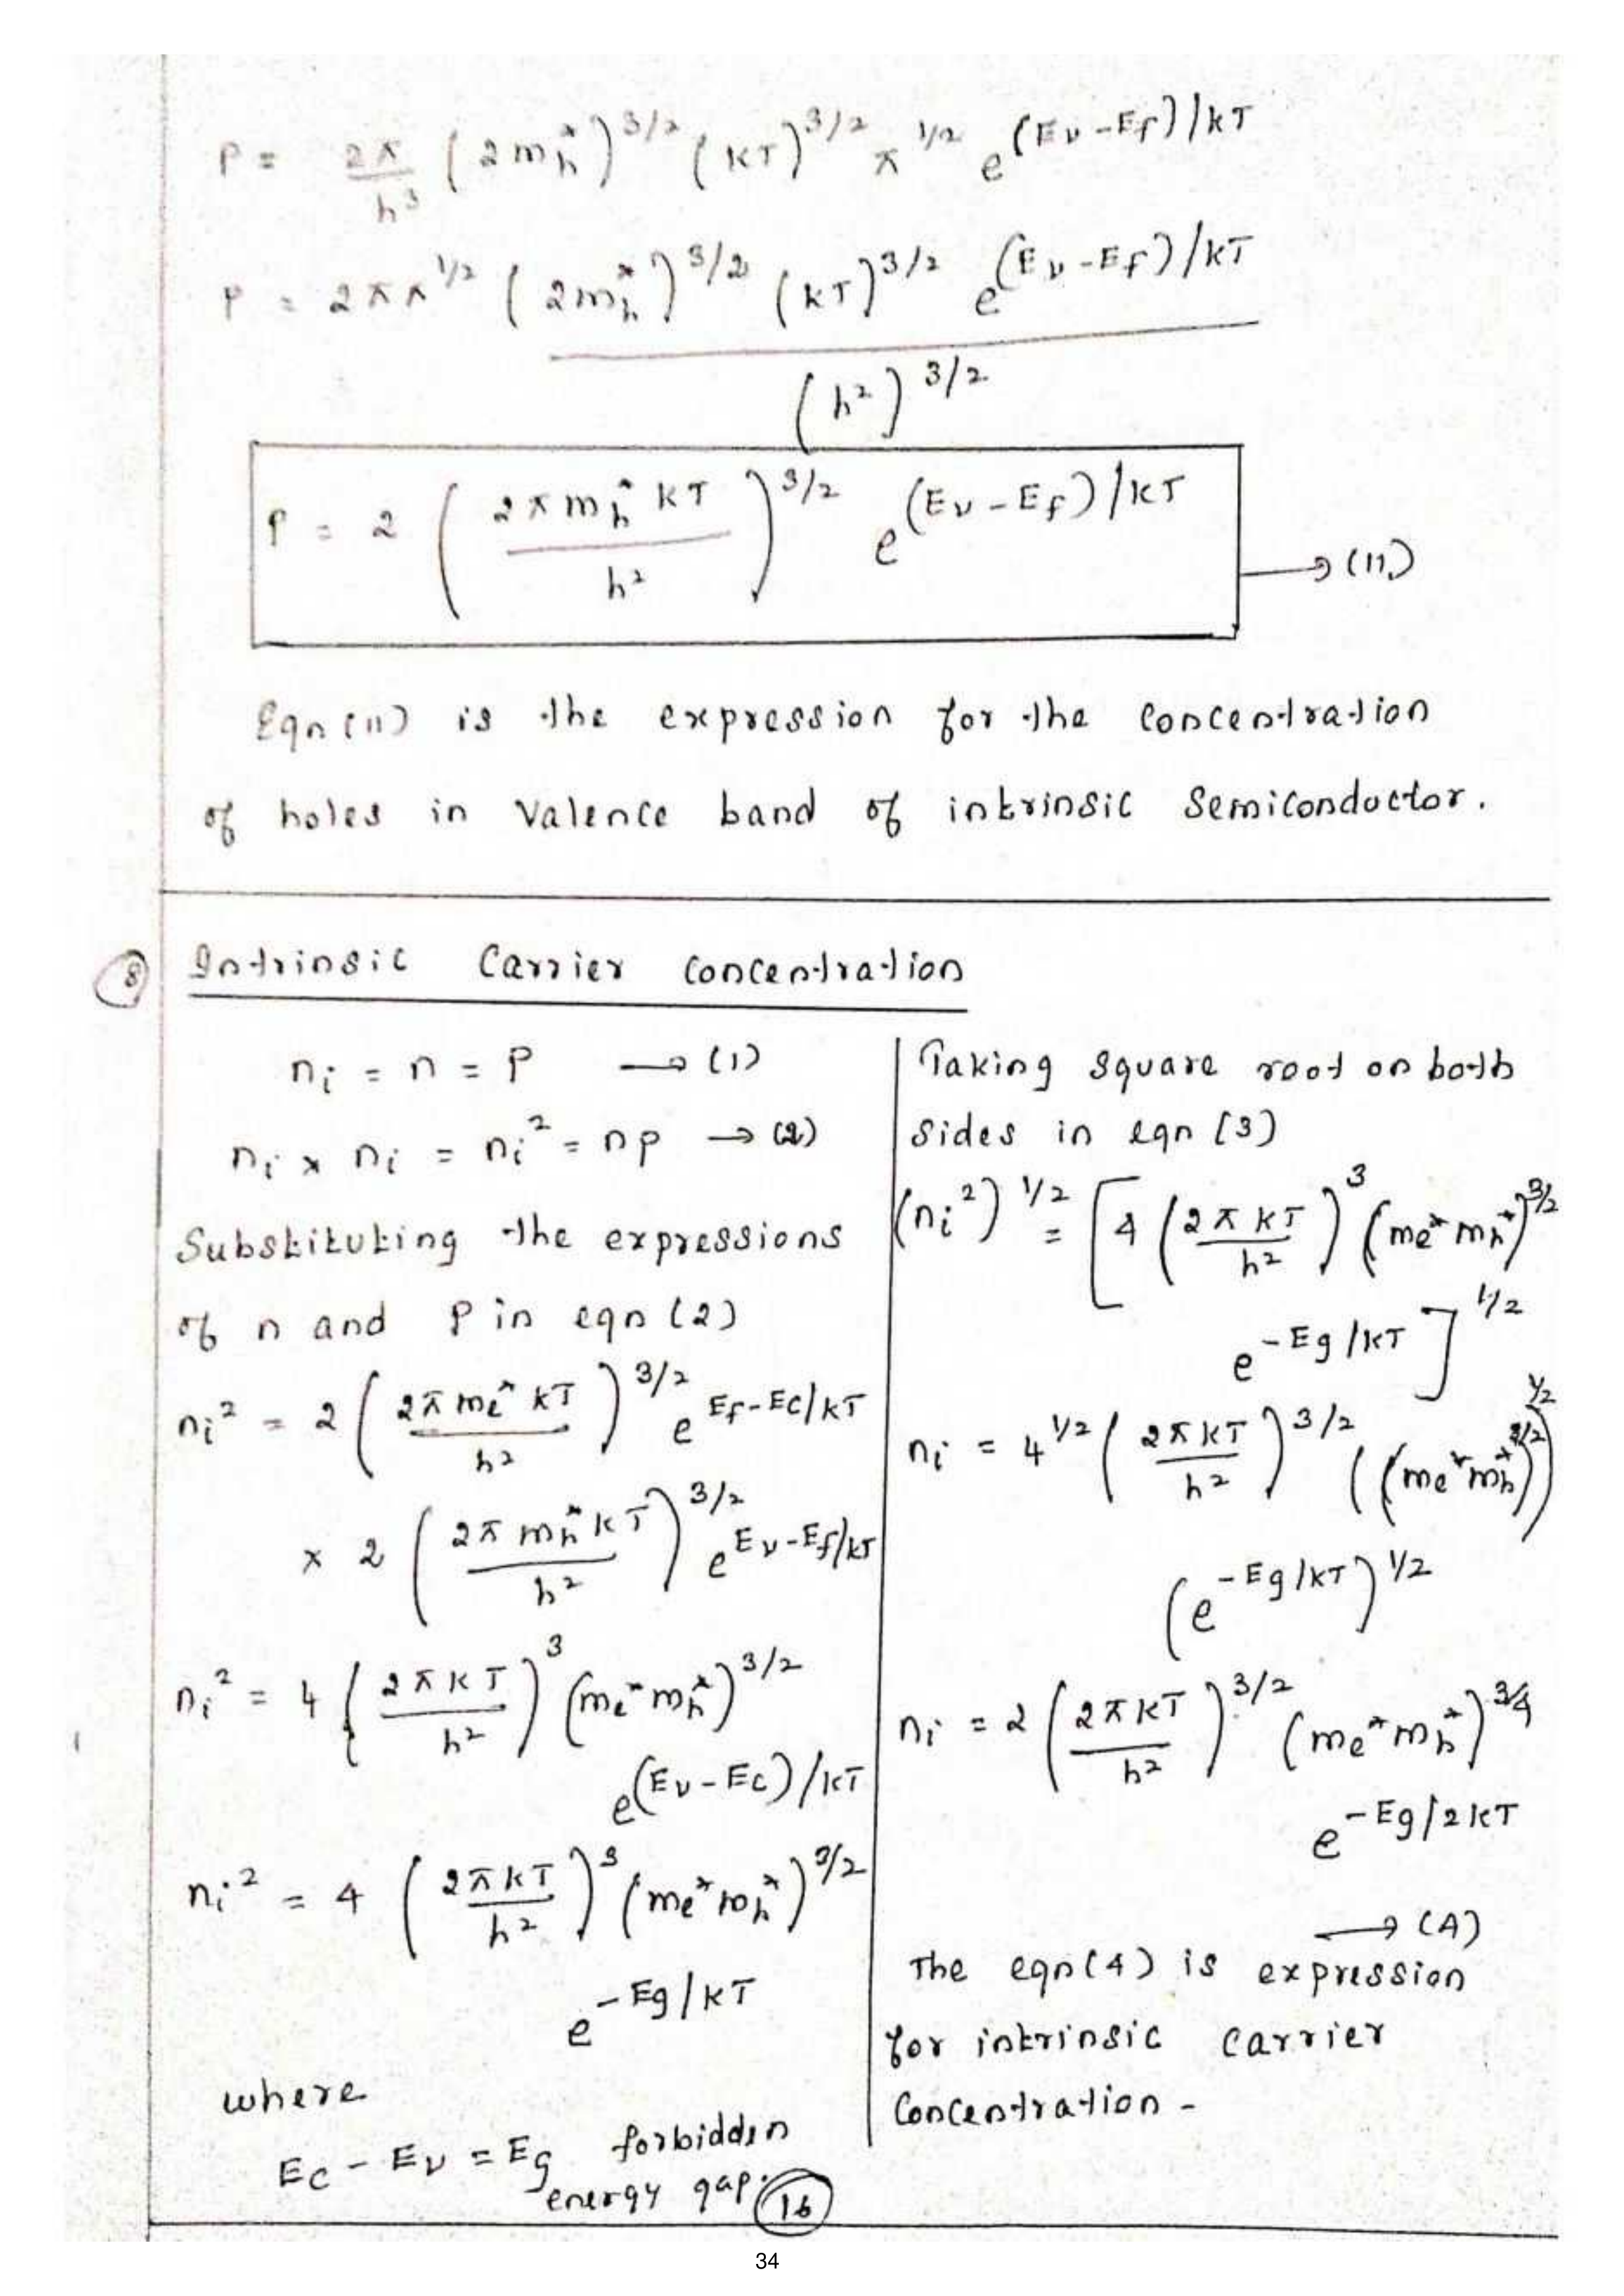 P = 2π/h³ (2m*h)^3/2 (kT)^3/2 π^1/2 e^(Ev-Ef)/kT
P = 2ππ^1/2 (2m*h)^3/2 (kT)^3/2 e^(Ev-Ef)/kT
(h²)^3/2
P = 2 (2πm*h kT / h²)^3/2 e^(Ev-Ef)/kT → (11)
Eqn (11) is the expression for the concentration
of holes in valence band of intrinsic semiconductor.
8 Intrinsic Carrier concentration
ni = n = P → (1)
ni × ni = ni² = np → (2)
Substituting the expressions
of n and P in eqn (2)
ni² = 2 (2πme* kT / h²)^3/2 e^Ef-Ec/kT
× 2 (2πmh* kT / h²)^3/2 e^Ev-Ef/kT
ni² = 4 (2πkT / h²)^3 (me* mh*)^3/2
e^(Ev-Ec)/kT
ni² = 4 (2πkT / h²)^3 (me* mh*)^3/2
e^-Eg/kT
where
Ec - Ev = Eg forbidden
energy gap.
Taking square root on both
sides in eqn (3)
(ni²)^1/2 = [4 (2πkT / h²)^3 (me* mh*)^3/2
e^-Eg/kT]^1/2
ni = 4^1/2 (2πkT / h²)^3/2 ((me* mh*)^3/2)^1/2
(e^-Eg/kT)^1/2
ni = 2 (2πkT / h²)^3/2 (me* mh*)^3/4
e^-Eg/2kT
→ (4)
The eqn (4) is expression
for intrinsic carrier
concentration -
16
34